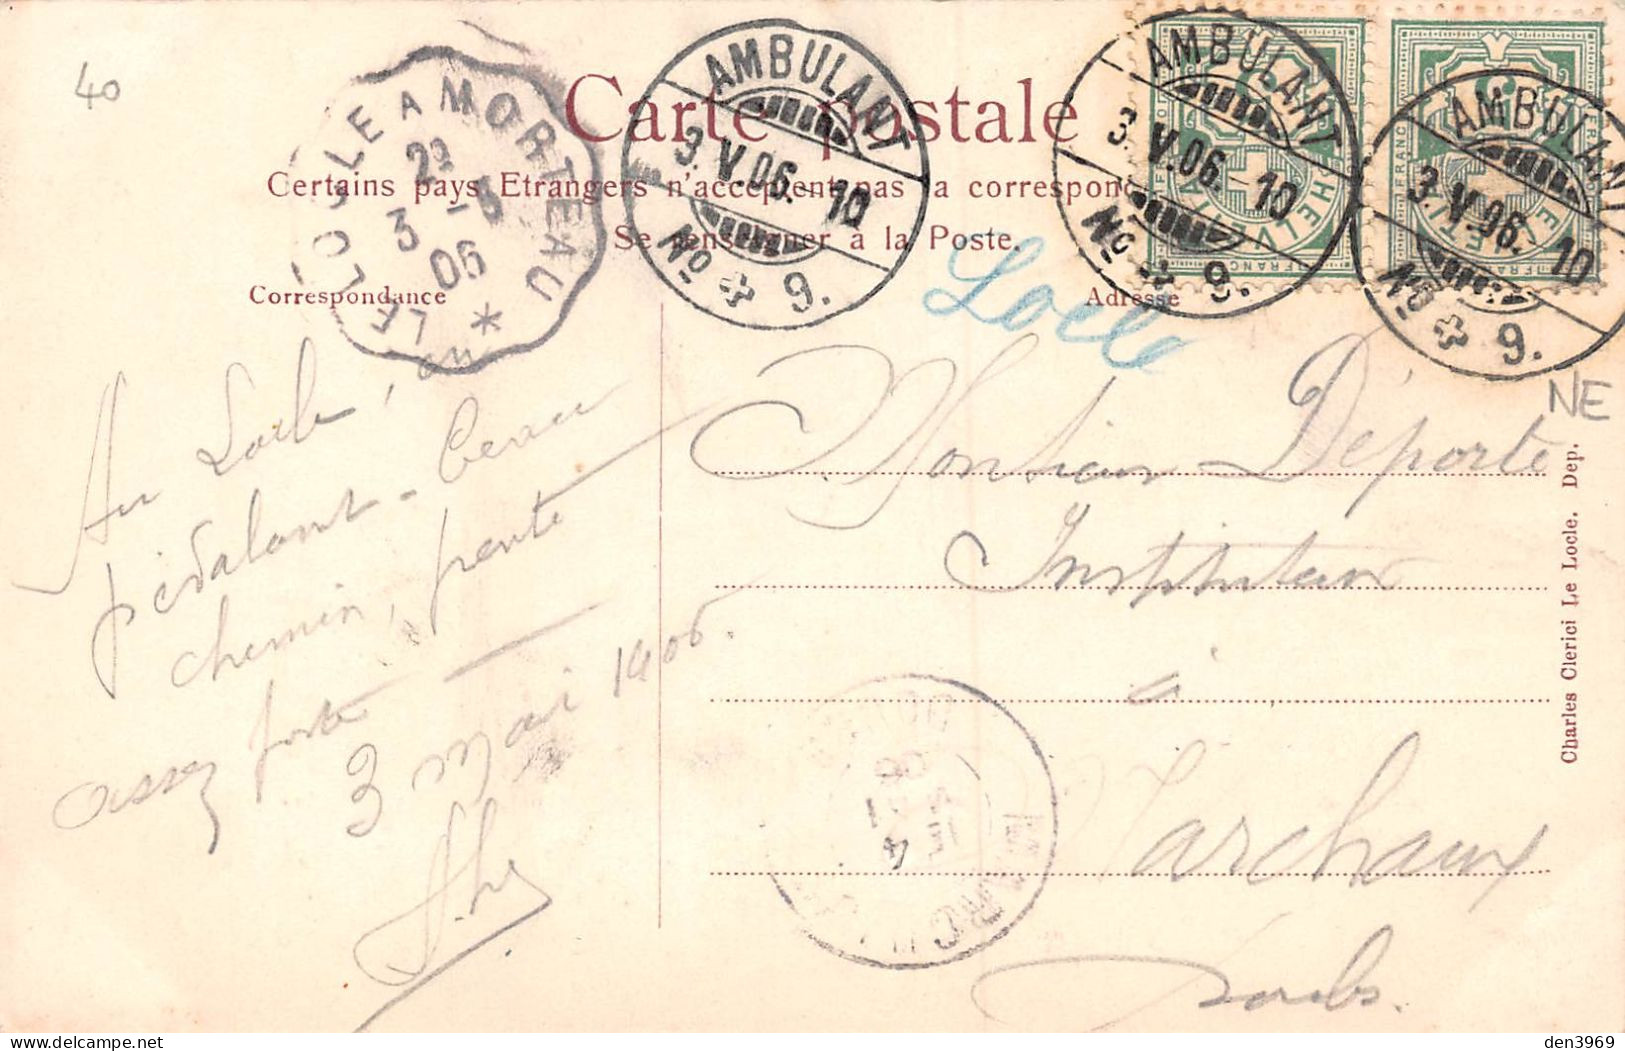 40
LE LOCLE A MORTEAU *
2ᴱ
3 - 5
06
AMBULANT
3.V.06. 10
No 9.
AMBULANT
3.V.06. 10
No 9.
AMBULANT
3.V.06. 10
No 9.
HELVETIA
FRANCO
Carte postale
Certains pays Etrangers n'acceptent pas la correspon
Se renseigner à la Poste.
Correspondance
Adresse
Locle
NE
Au Locle, en
pédalant - beau
chemin, pente
assez forte
3 mai 1906.
Monsieur Déporte
Instituteur
à
Marchaux
Doubs.
MARCHAUX
4
MAI
06
Charles Clerici Le Locle. Dep.
den3969